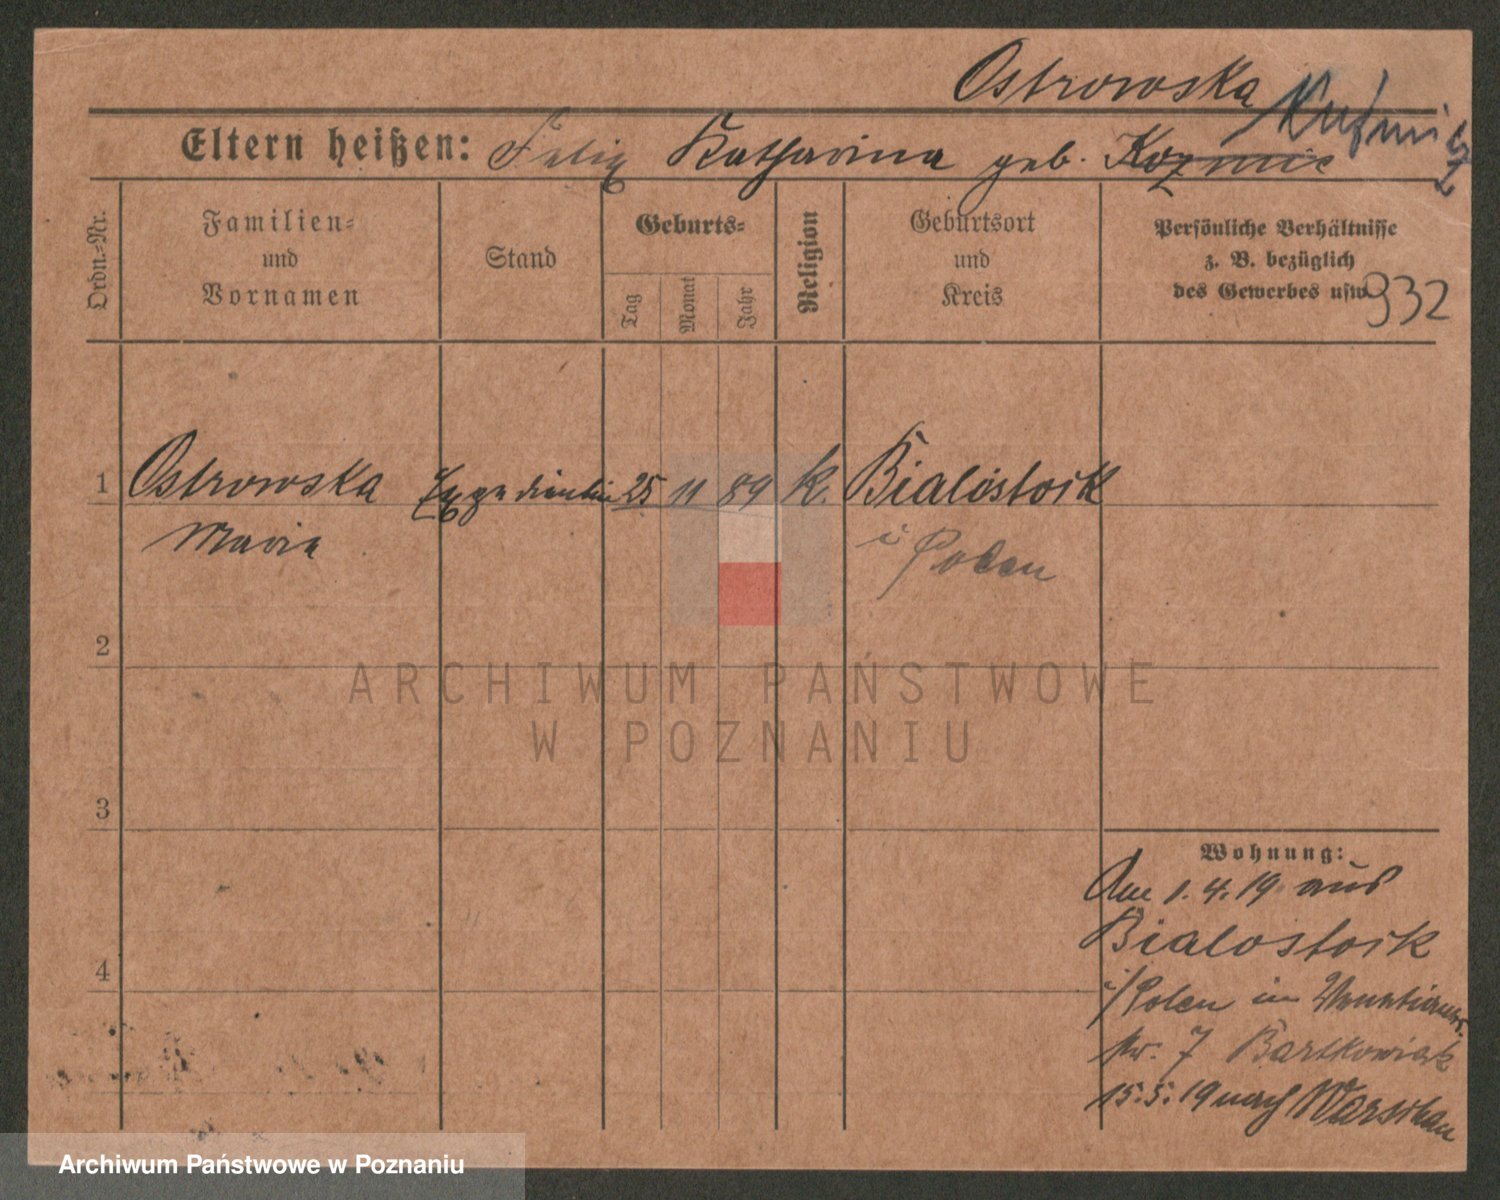 Ostrowska
Eltern heißen: Felix Katharina geb. Kozmic
Ordn.-Nr.
Familien-
und
Vornamen
Stand
Geburts-
Tag
Monat
Jahr
Religion
Geburtsort
und
Kreis
Persönliche Verhältnisse
z. B. bezüglich
des Gewerbes usw.
932
1 Ostrowska Expedientin 25 11 89 k. Bialostock
Marie i Polen
2
3
4
Wohnung:
Am 1.4.19 aus
Bialostock
i/Polen in
Nr. 7 Bartkowiak
15.5.19 nach Warschau
ARCHIWUM PAŃSTWOWE
W POZNANIU
Archiwum Państwowe w Poznaniu